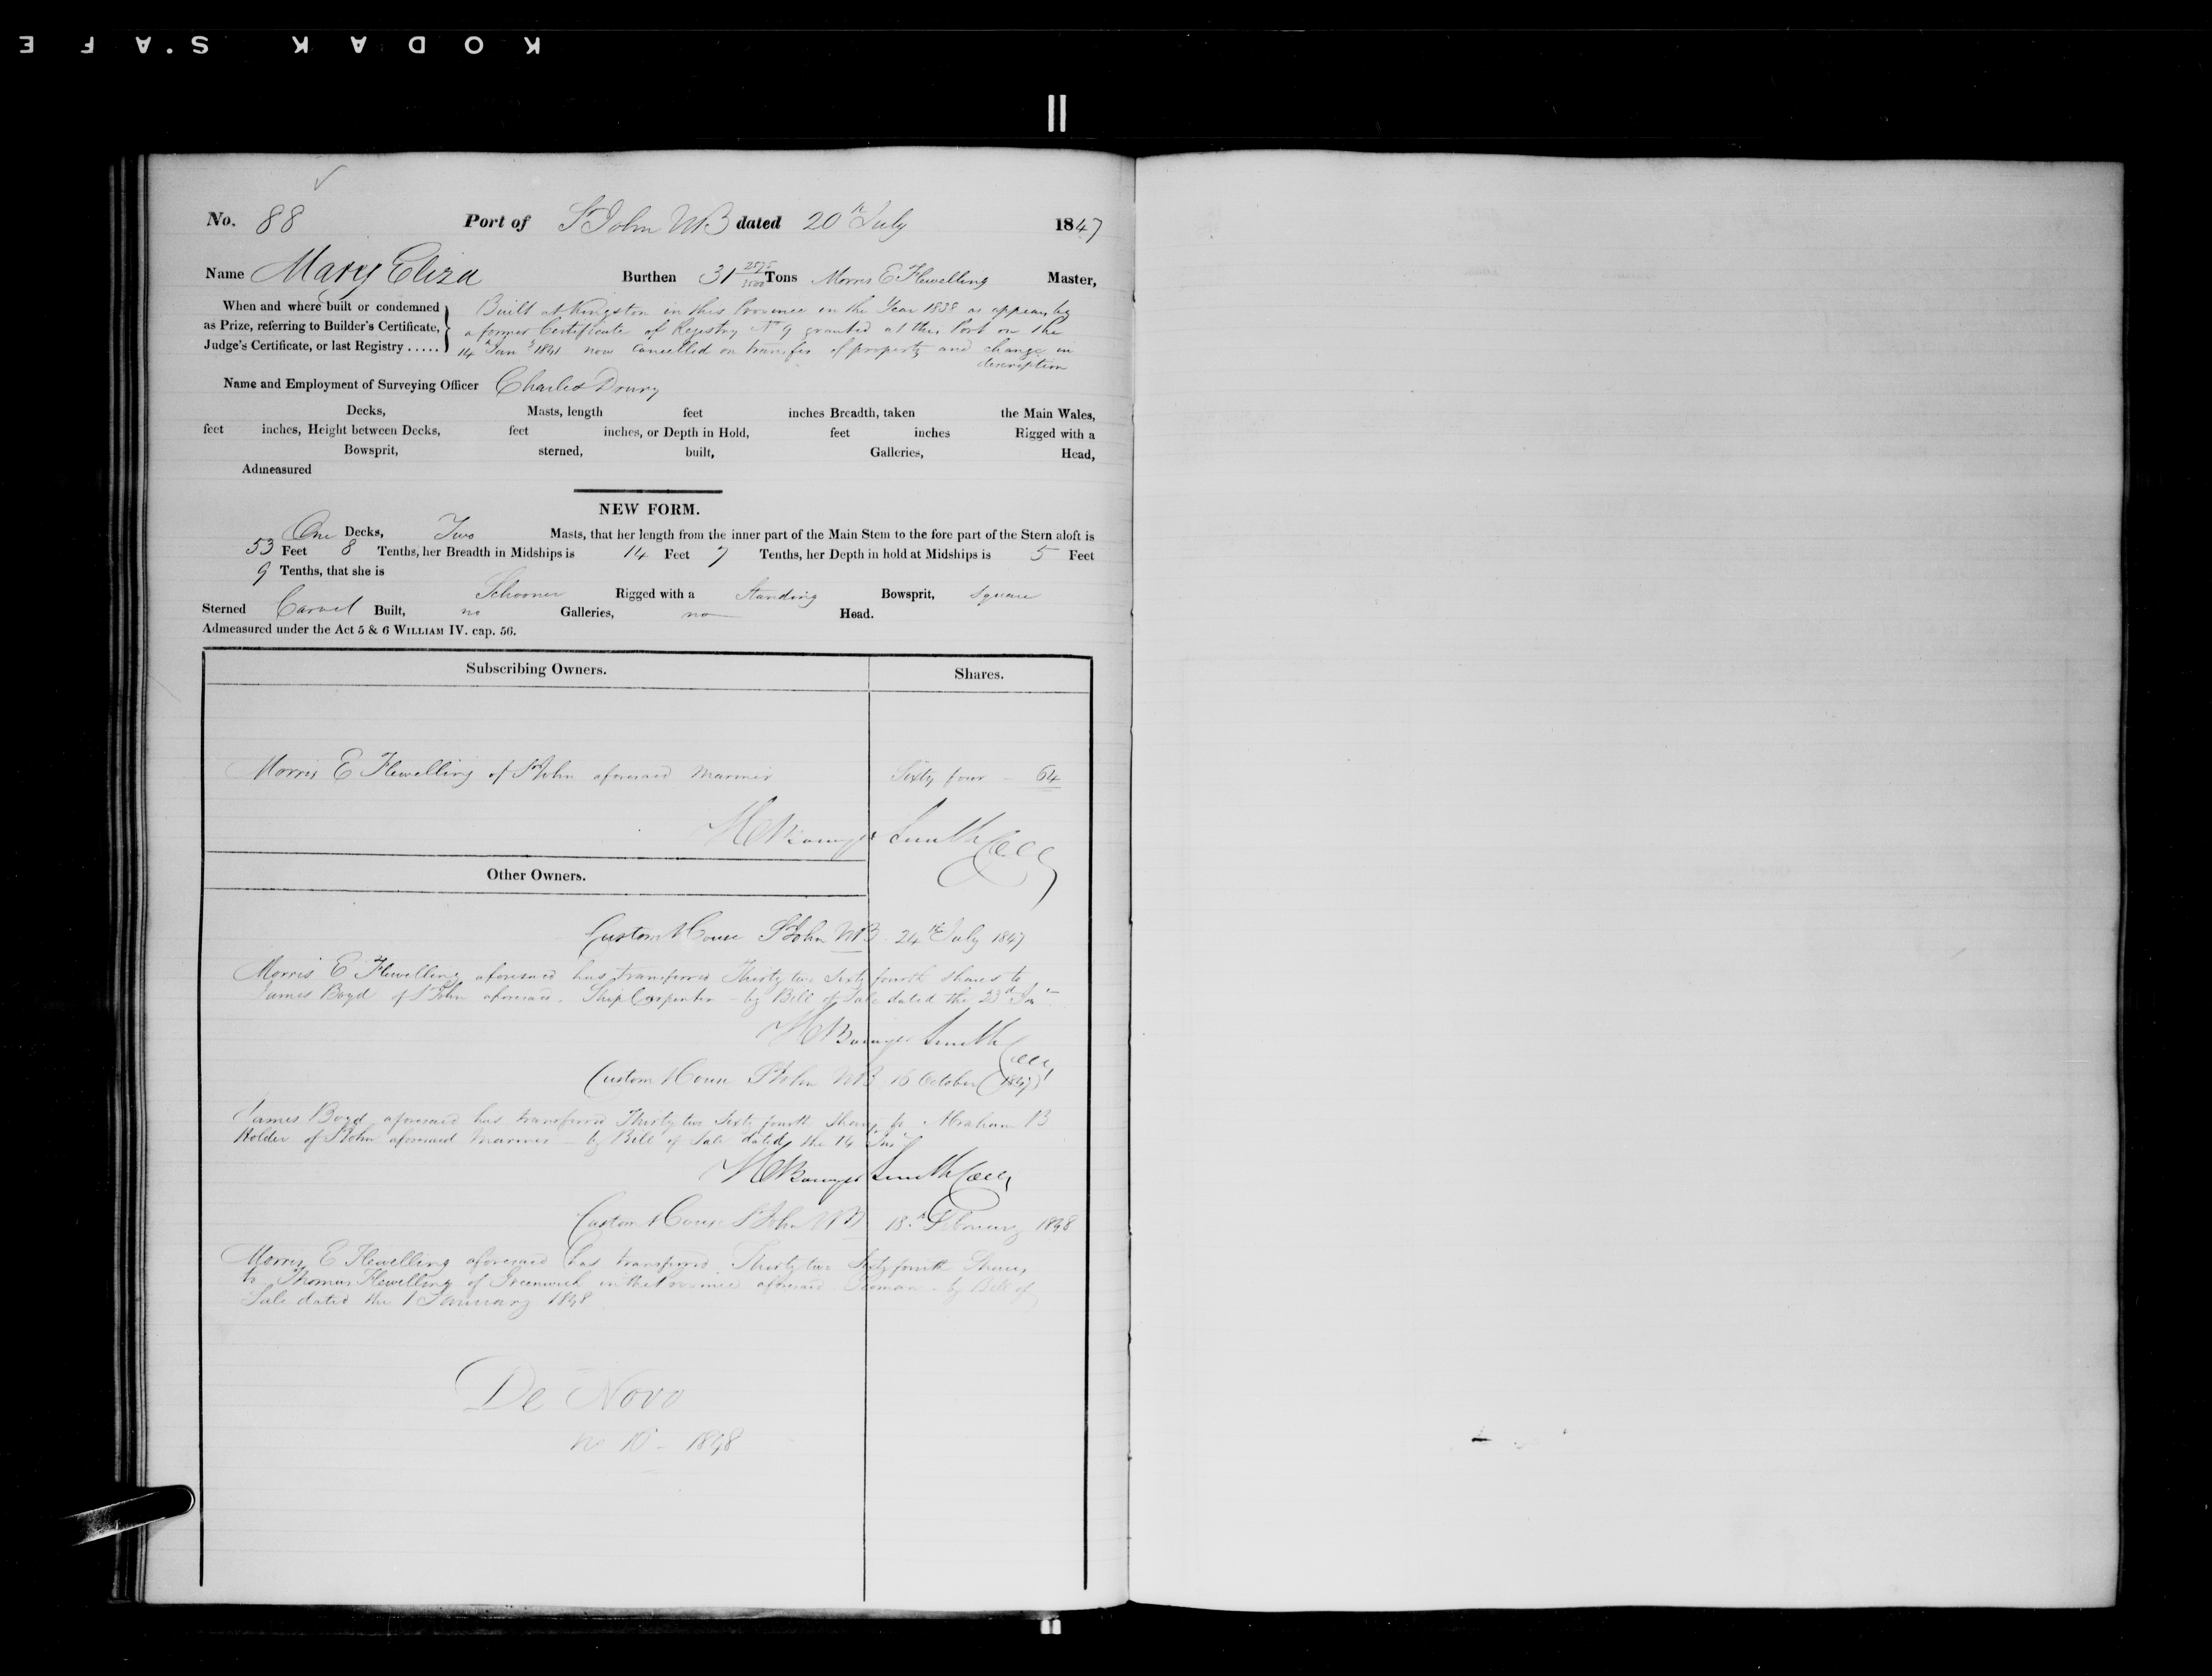 KODAK SAFE
No. 88 Port of St John NB dated 20th July 1847
Name Mary Eliza Burthen 31 2575/3500 Tons Morris E Flewelling Master,
When and where built or condemned
as Prize, referring to Builder's Certificate,
Judge's Certificate, or last Registry .....
Built at Kingston in this Province in the Year 1838 as appears by
a former Certificate of Registry No 9 granted at this Port on the
14th 1841 now cancelled on transfer of property and change in
description
Name and Employment of Surveying Officer Charles Drury
Decks, Masts, length feet inches Breadth, taken the Main Wales,
feet inches, Height between Decks, feet inches, or Depth in Hold, feet inches Rigged with a
Bowsprit, sterned, built, Galleries, Head,
Admeasured
NEW FORM.
One Decks, Two Masts, that her length from the inner part of the Main Stem to the fore part of the Stern aloft is
53 Feet 8 Tenths, her Breadth in Midships is 14 Feet 7 Tenths, her Depth in hold at Midships is 5 Feet
9 Tenths, that she is
Schooner Rigged with a Standing Bowsprit, Square
Sterned Carvel Built, no Galleries, no Head.
Admeasured under the Act 5 & 6 WILLIAM IV. cap. 56.
Subscribing Owners. Shares.
Morris E Flewelling of St John aforesaid Mariner Sixty four - 64
H Bowyer Smith Coll
Other Owners.
Custom House St John NB 24th July 1847
Morris E Flewelling aforesaid has transferred Thirty two Sixty fourth shares to
James Boyd of St John aforesaid Ship Carpenter - by Bill of Sale dated the 23d Inst
H Bowyer Smith
Coll
Custom House St John NB 16 October 1847
James Boyd aforesaid has transferred Thirty two Sixty fourth Shares to Abraham B
Holder of St John aforesaid Mariner - by Bill of Sale dated the 14 Inst
H Bowyer Smith Coll
Custom House St John NB 18th February 1848
Morris E Flewelling aforesaid has transferred Thirty two Sixty fourth Shares
to Thomas Flewelling of Greenwich in the Province aforesaid Yeoman - by Bill of
Sale dated the 1 January 1848
De Novo
No 10 - 1848